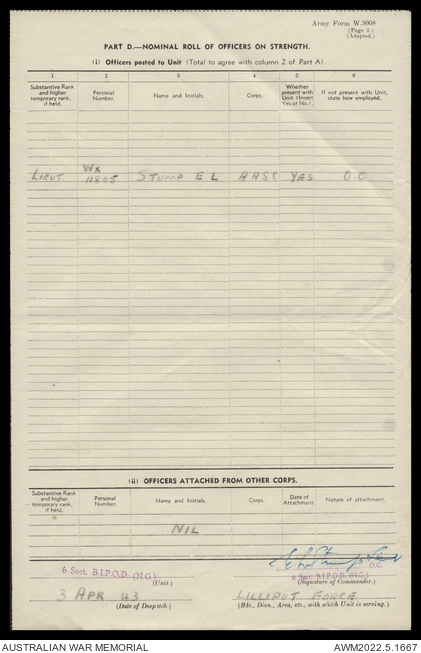 Army Form W.3008
(Page 2.)
(Adapted.)
PART D.—NOMINAL ROLL OF OFFICERS ON STRENGTH.
(i) Officers posted to Unit (Total to agree with column 2 of Part A).
1 2 3 4 5 6
Substantive Rank and higher temporary rank, if held. Personal Number. Name and Initials. Corps. Whether present with Unit (Insert Yes or No.). If not present with Unit, state how employed.
LIEUT WX 11805 STUMP E L AASC YES O.C
(ii) OFFICERS ATTACHED FROM OTHER CORPS.
Substantive Rank and higher temporary rank, if held. Personal Number. Name and Initials. Corps. Date of Attachment. Nature of attachment.
NIL
O.C.
6 Sect. B.I.P.O.D. (N.G.) 6 Sect. B.I.P.O.D. (N.G.)
(Unit.) (Signature of Commander.)
3 APR 43 LILLIPUT FORCE
(Date of Despatch.) (Bde., Divn., Area, etc., with which Unit is serving.)
AUSTRALIAN WAR MEMORIAL AWM2022.5.1667